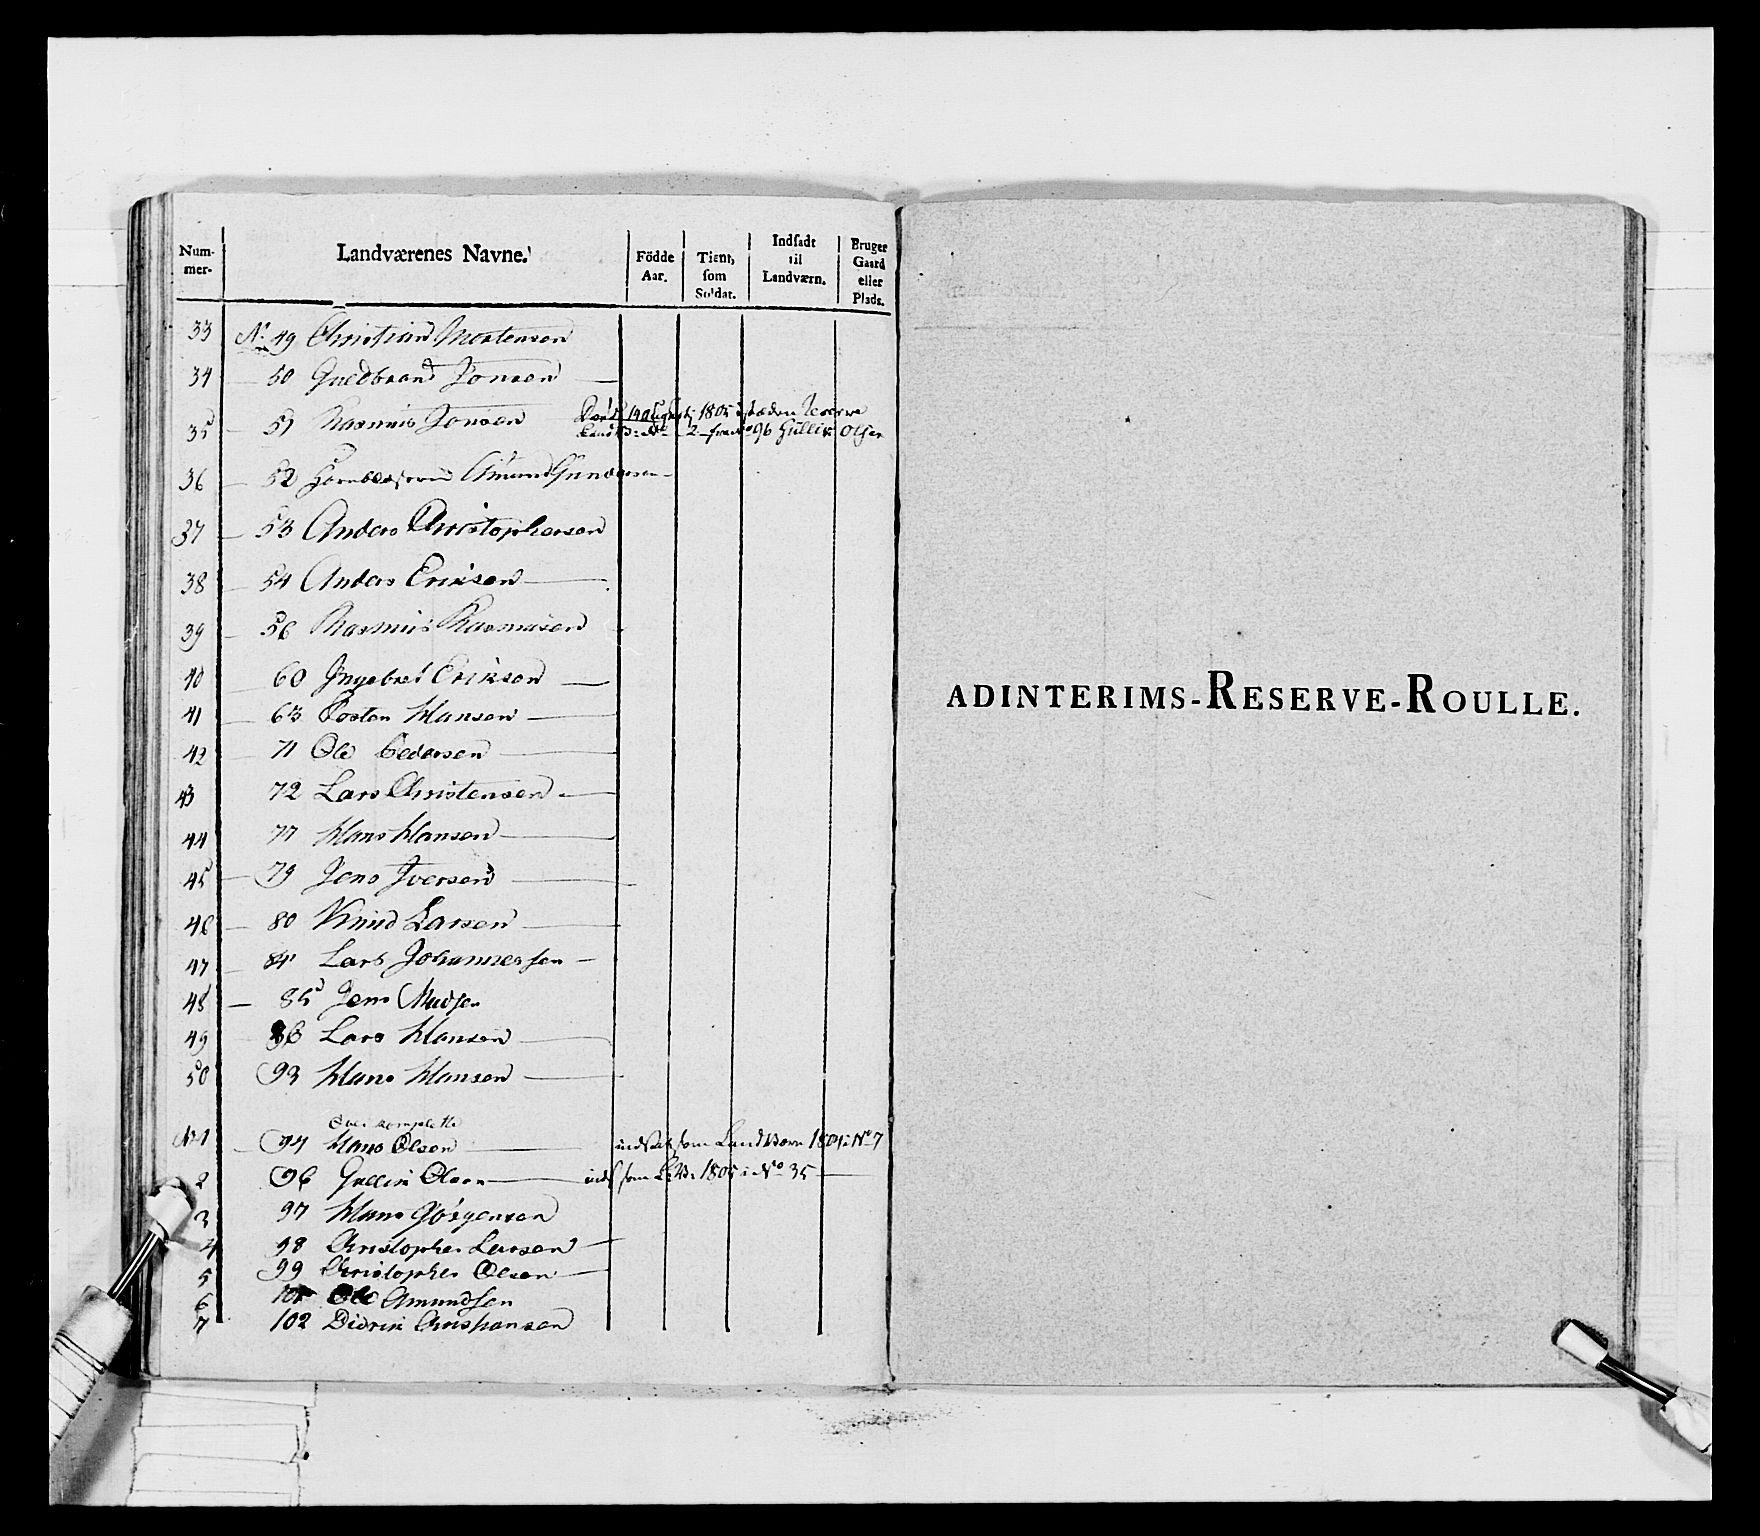 Num-
mer-
Landværenes Navne.
Födde
Aar.
Tient,
som
Soldat.
Indsadt
til
Landværn.
Bruger
Gaard
eller
Plads.
33 No 49 Christian Mortensen
34 50 Guldbrand Jonsen
35 51 Rasmus Jonsen
1805 96 Gullik Olsen
36 52 Amund Gundersen
37 53 Anders Christophersen
38 54 Anders Eriksen
39 56 Rasmus Rasmusen
40 60 Ingebret Eriksen
41 63 Hansen
42 71 Ole Pedersen
43 72 Lars Christensen
44 77 Hans Hansen
45 79 Jens Iversen
46 80 Knud Larsen
47 84 Lars Johannessen
48 85 Jens Madsen
49 86 Lars Hansen
50 93 Hans Hansen
Over komplette
No 1 94 Hans Olsen indsat som Landværn 1804 i No 7
2 96 Gullik Olsen inds som L: V: 1805 i No 35
3 97 Hans Jörgensen
4 98 Christopher Larsen
5 99 Christopher Olsen
6 101 Ole Amundsen
7 102 Didrik Christiansen
ADINTERIMS-RESERVE-ROULLE.